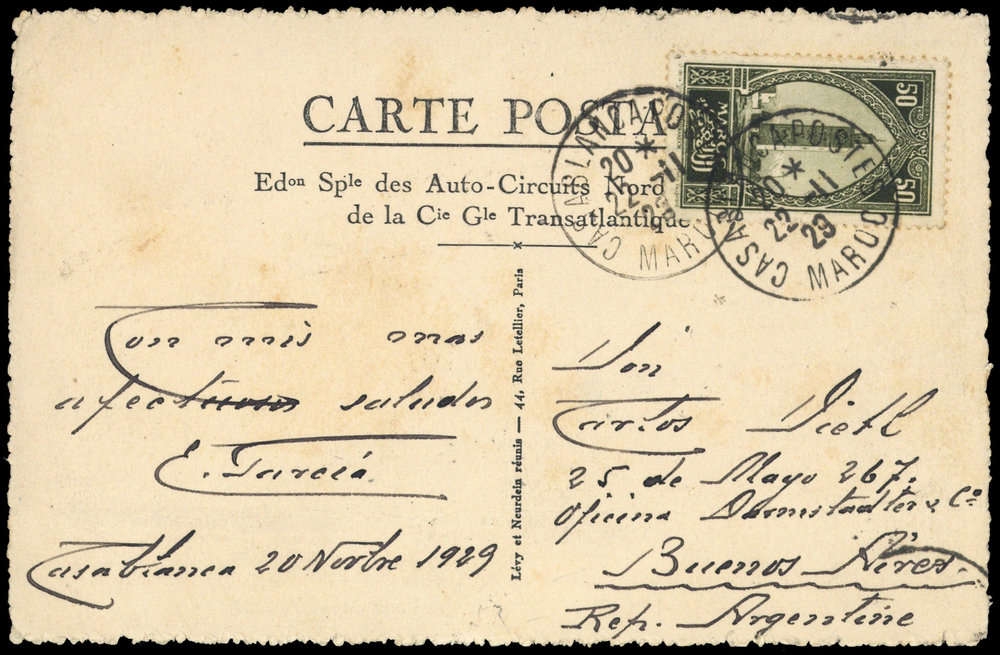 CARTE POSTA
Edon Sple des Auto-Circuits Nord
de la Cie Gle Transatlantique
50
50
MAROC
CASABLANCA POSTES
20 *
22 -11
29
MAROC
CASABLANCA-POSTES
20 *
22 -11
29
MAROC
Con mis mas
afectuosos saludos
E. García
Casablanca 20 Novbre 1929
Lévy et Neurdein réunis — 44, Rue Letellier, Paris
Don
Carlos Dietl
25 de Mayo 267.
Oficina Darmstadter & Co
Buenos Aires.
Rep. Argentine